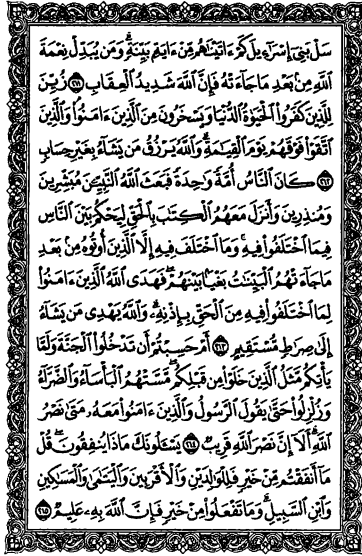 سَلْ بَنِىٓ إِسْرَٰٓءِيلَ كَمْ ءَاتَيْنَٰهُم مِّنْ ءَايَةٍۭ بَيِّنَةٍ ۗ وَمَن يُبَدِّلْ نِعْمَةَ
ٱللَّهِ مِنۢ بَعْدِ مَا جَآءَتْهُ فَإِنَّ ٱللَّهَ شَدِيدُ ٱلْعِقَابِ ﴿٢١١﴾ زُيِّنَ
لِلَّذِينَ كَفَرُوا۟ ٱلْحَيَوٰةُ ٱلدُّنْيَا وَيَسْخَرُونَ مِنَ ٱلَّذِينَ ءَامَنُوا۟ ۘ وَٱلَّذِينَ
ٱتَّقَوْا۟ فَوْقَهُمْ يَوْمَ ٱلْقِيَٰمَةِ ۗ وَٱللَّهُ يَرْزُقُ مَن يَشَآءُ بِغَيْرِ حِسَابٍ
﴿٢١٢﴾ كَانَ ٱلنَّاسُ أُمَّةً وَٰحِدَةً فَبَعَثَ ٱللَّهُ ٱلنَّبِيِّۦنَ مُبَشِّرِينَ
وَمُنذِرِينَ وَأَنزَلَ مَعَهُمُ ٱلْكِتَٰبَ بِٱلْحَقِّ لِيَحْكُمَ بَيْنَ ٱلنَّاسِ
فِيمَا ٱخْتَلَفُوا۟ فِيهِ ۚ وَمَا ٱخْتَلَفَ فِيهِ إِلَّا ٱلَّذِينَ أُوتُوهُ مِنۢ بَعْدِ
مَا جَآءَتْهُمُ ٱلْبَيِّنَٰتُ بَغْيًۢا بَيْنَهُمْ ۖ فَهَدَى ٱللَّهُ ٱلَّذِينَ ءَامَنُوا۟
لِمَا ٱخْتَلَفُوا۟ فِيهِ مِنَ ٱلْحَقِّ بِإِذْنِهِۦ ۗ وَٱللَّهُ يَهْدِى مَن يَشَآءُ
إِلَىٰ صِرَٰطٍ مُّسْتَقِيمٍ ﴿٢١٣﴾ أَمْ حَسِبْتُمْ أَن تَدْخُلُوا۟ ٱلْجَنَّةَ وَلَمَّا
يَأْتِكُم مَّثَلُ ٱلَّذِينَ خَلَوْا۟ مِن قَبْلِكُم ۖ مَّسَّتْهُمُ ٱلْبَأْسَآءُ وَٱلضَّرَّآءُ
وَزُلْزِلُوا۟ حَتَّىٰ يَقُولَ ٱلرَّسُولُ وَٱلَّذِينَ ءَامَنُوا۟ مَعَهُۥ مَتَىٰ نَصْرُ
ٱللَّهِ ۗ أَلَآ إِنَّ نَصْرَ ٱللَّهِ قَرِيبٌ ﴿٢١٤﴾ يَسْـَٔلُونَكَ مَاذَا يُنفِقُونَ ۖ قُلْ
مَآ أَنفَقْتُم مِّنْ خَيْرٍ فَلِلْوَٰلِدَيْنِ وَٱلْأَقْرَبِينَ وَٱلْيَتَٰمَىٰ وَٱلْمَسَٰكِينِ
وَٱبْنِ ٱلسَّبِيلِ ۗ وَمَا تَفْعَلُوا۟ مِنْ خَيْرٍ فَإِنَّ ٱللَّهَ بِهِۦ عَلِيمٌ ﴿٢١٥﴾